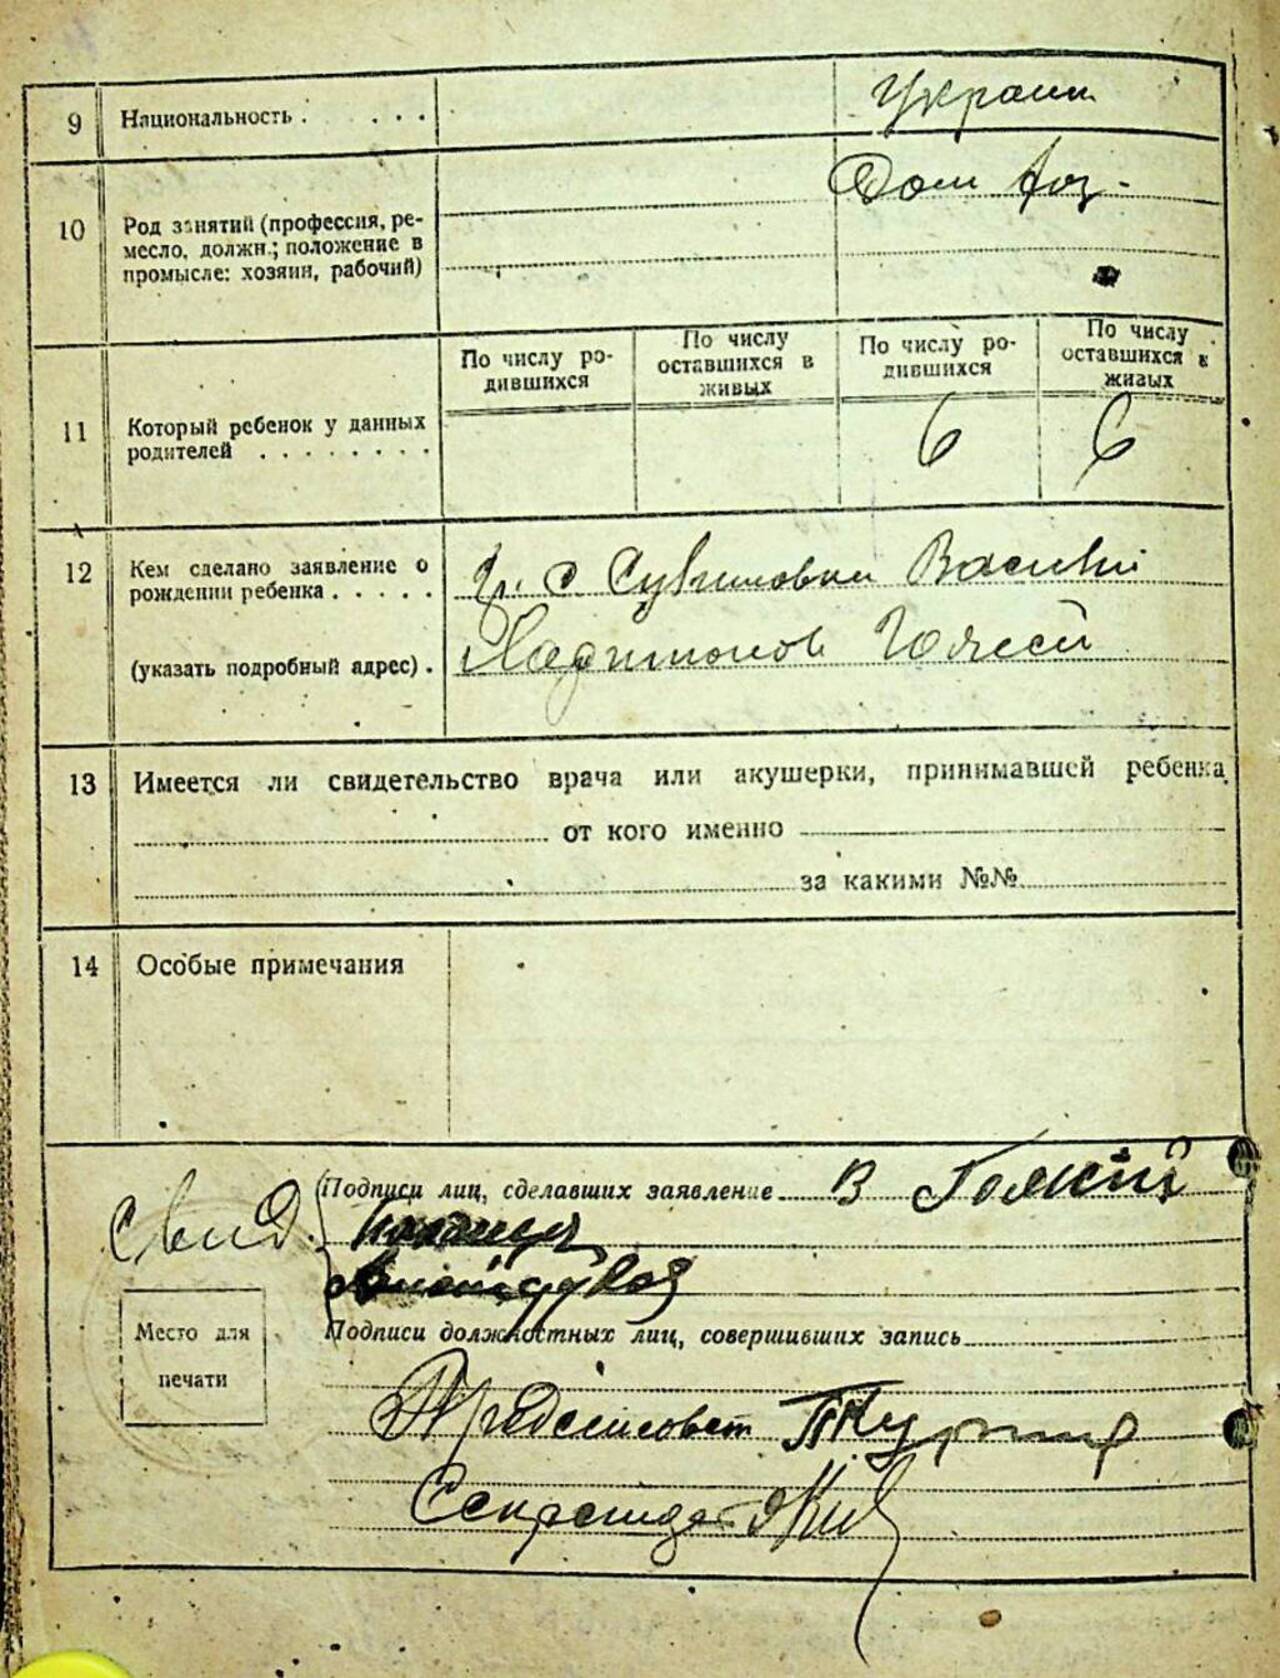 9 Национальность . . . . . Украин
10 Род занятий (профессия, ре-
месло, должн.; положение в
промысле: хозяин, рабочий)
Дом хоз-
По числу ро-
дившихся
По числу
оставшихся в
живых
По числу ро-
дившихся
По числу
оставшихся в
живых
11 Который ребенок у данных
родителей . . . . . . . .
6 6
12 Кем сделано заявление о
рождении ребенка . . . . .
(указать подробный адрес) .
с. Василий
13 Имеется ли свидетельство врача или акушерки, принимавшей ребенка
от кого именно
за какими №№
14 Особые примечания
Свид.
Подписи лиц, сделавших заявление В
Место для
печати
Подписи должностных лиц, совершивших запись
Предсельсовет
Секретарь